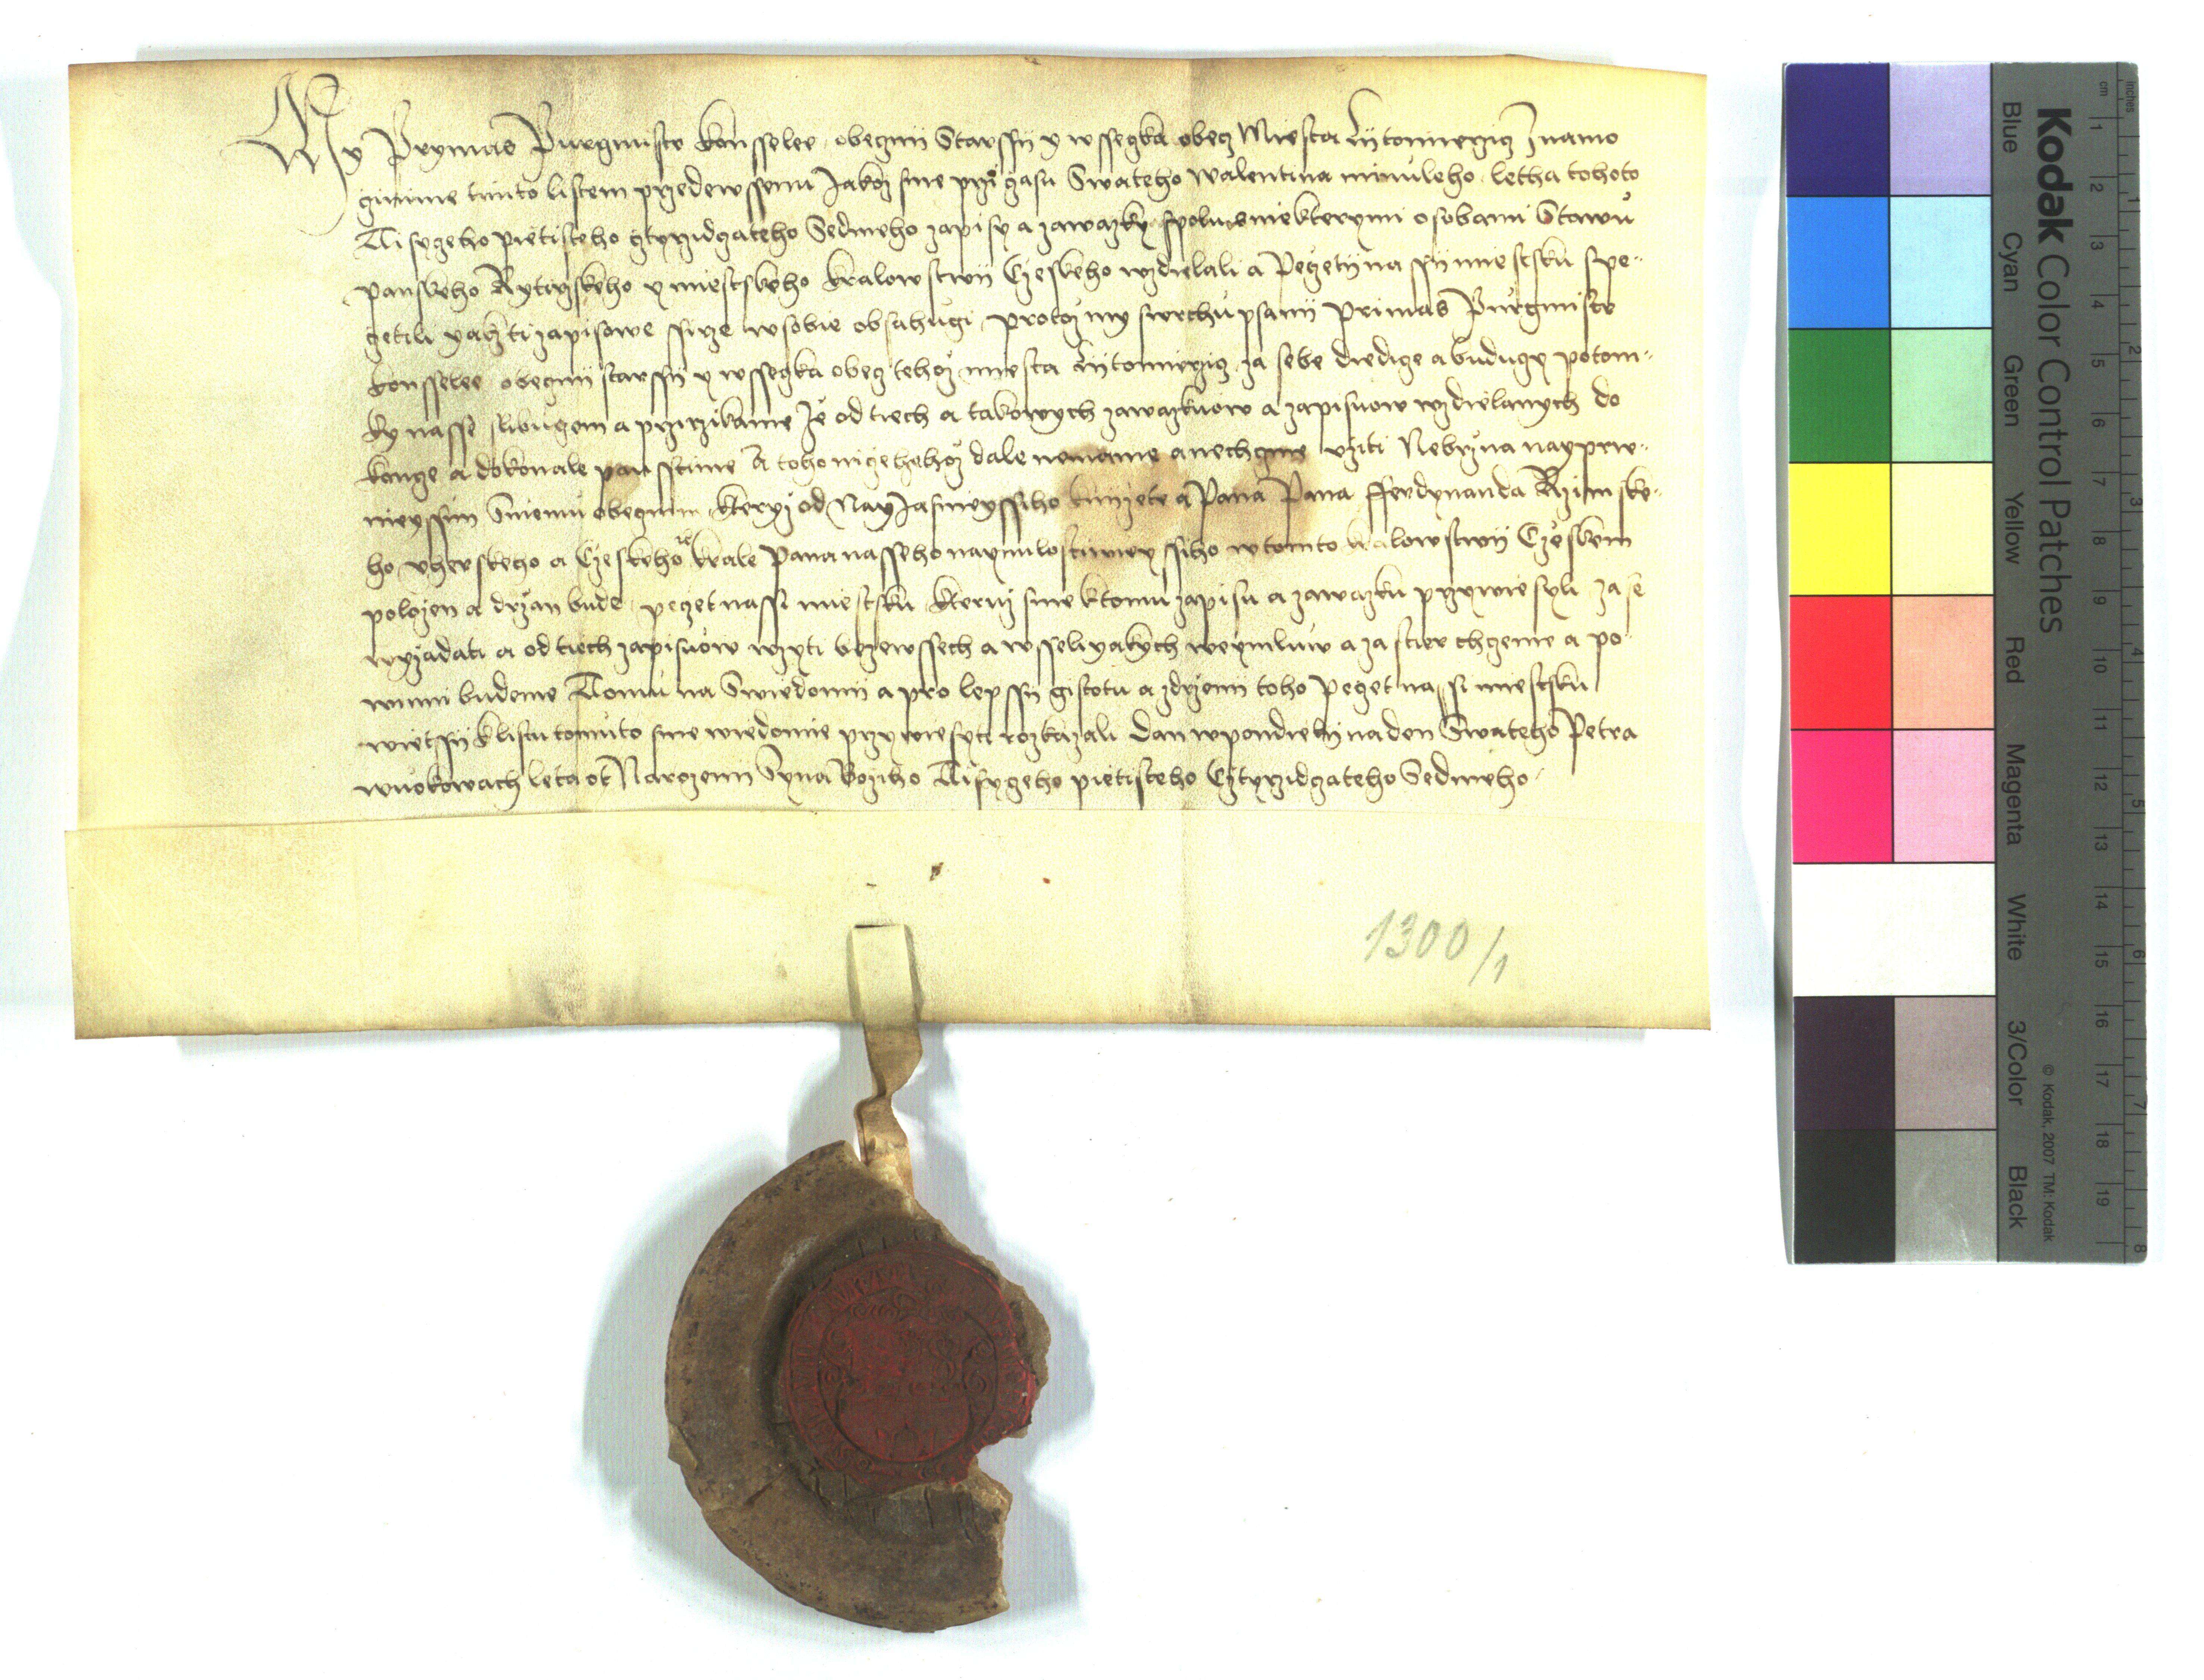 My Prymas Purgmistr konsselee obecznii Starssii y wssegka obecz Miesta Liitomierzicz Znamo
ginime timto listem przedewssemi Jakoz sme przi gasu Swateho Walentina minuleho letha tohoto
Tisyczeho pietisteho cztyrzidczateho Sedmeho zapisy a zawazky spolu sniekterymi osobami Stawu
panskeho Rytirzskeho y miestskeho Kralowstwii Czeskeho wzdielali a Peczetii nassii miestsku spe-
czetili yakz ti zapisowe ssirze wsobie obsahugi, protoz my swrchupsanii Primas Purgmistr
konsselee obecznii starssii y wssegka obecz tehoz miesta Liitomierzicz za sebe diedicze a buduczy potom-
ky nasse slibugem a przirzikame Ze od tiech a takowych zawazkuow a zapisuow wzdielanych do
konge a dokonale paussstime A toho niczehehoz dale nemame a nechczme uziti Nebrz na nayprw-
nieyssim Sniemu obecznim kteryz od Nay Jasnieyssiho knizete a Pana Pana Fferdynanda Rzimske-
ho Uherskeho a Czeskeho ze Krale Pana nasseho naymilostiwieyssiho wtomto kralowstwii Czeskem
polozen a drzan bude, peczet nassi miestsku kteruz sme ktomu zapisu a zawazku przywiesyli zase
wyzadati a od tiech zapisuow wzyti bezewssech a wsseliyakych weymluw a zastier chczeme a po-
winni budeme Tomu na Swiedomii a pro lepssii gistotu a zdrzenii toho Peczet nassi miestsku
wietssii klistu tomuto sme wiedomie przywiesyti rozkazali Dan wpondielii na den Swateho Petra
wuokowach leta ot Narozenii Syna Boziho Tisyczeho pietisteho Cztyrzidczateho Sedmeho
1300/1
Kodak Color Control Patches
© Kodak, 2007 TM: Kodak
Blue Cyan Green Yellow Red Magenta White 3/Color Black
inches 1 2 3 4 5 6 7 8
cm 1 2 3 4 5 6 7 8 9 10 11 12 13 14 15 16 17 18 19